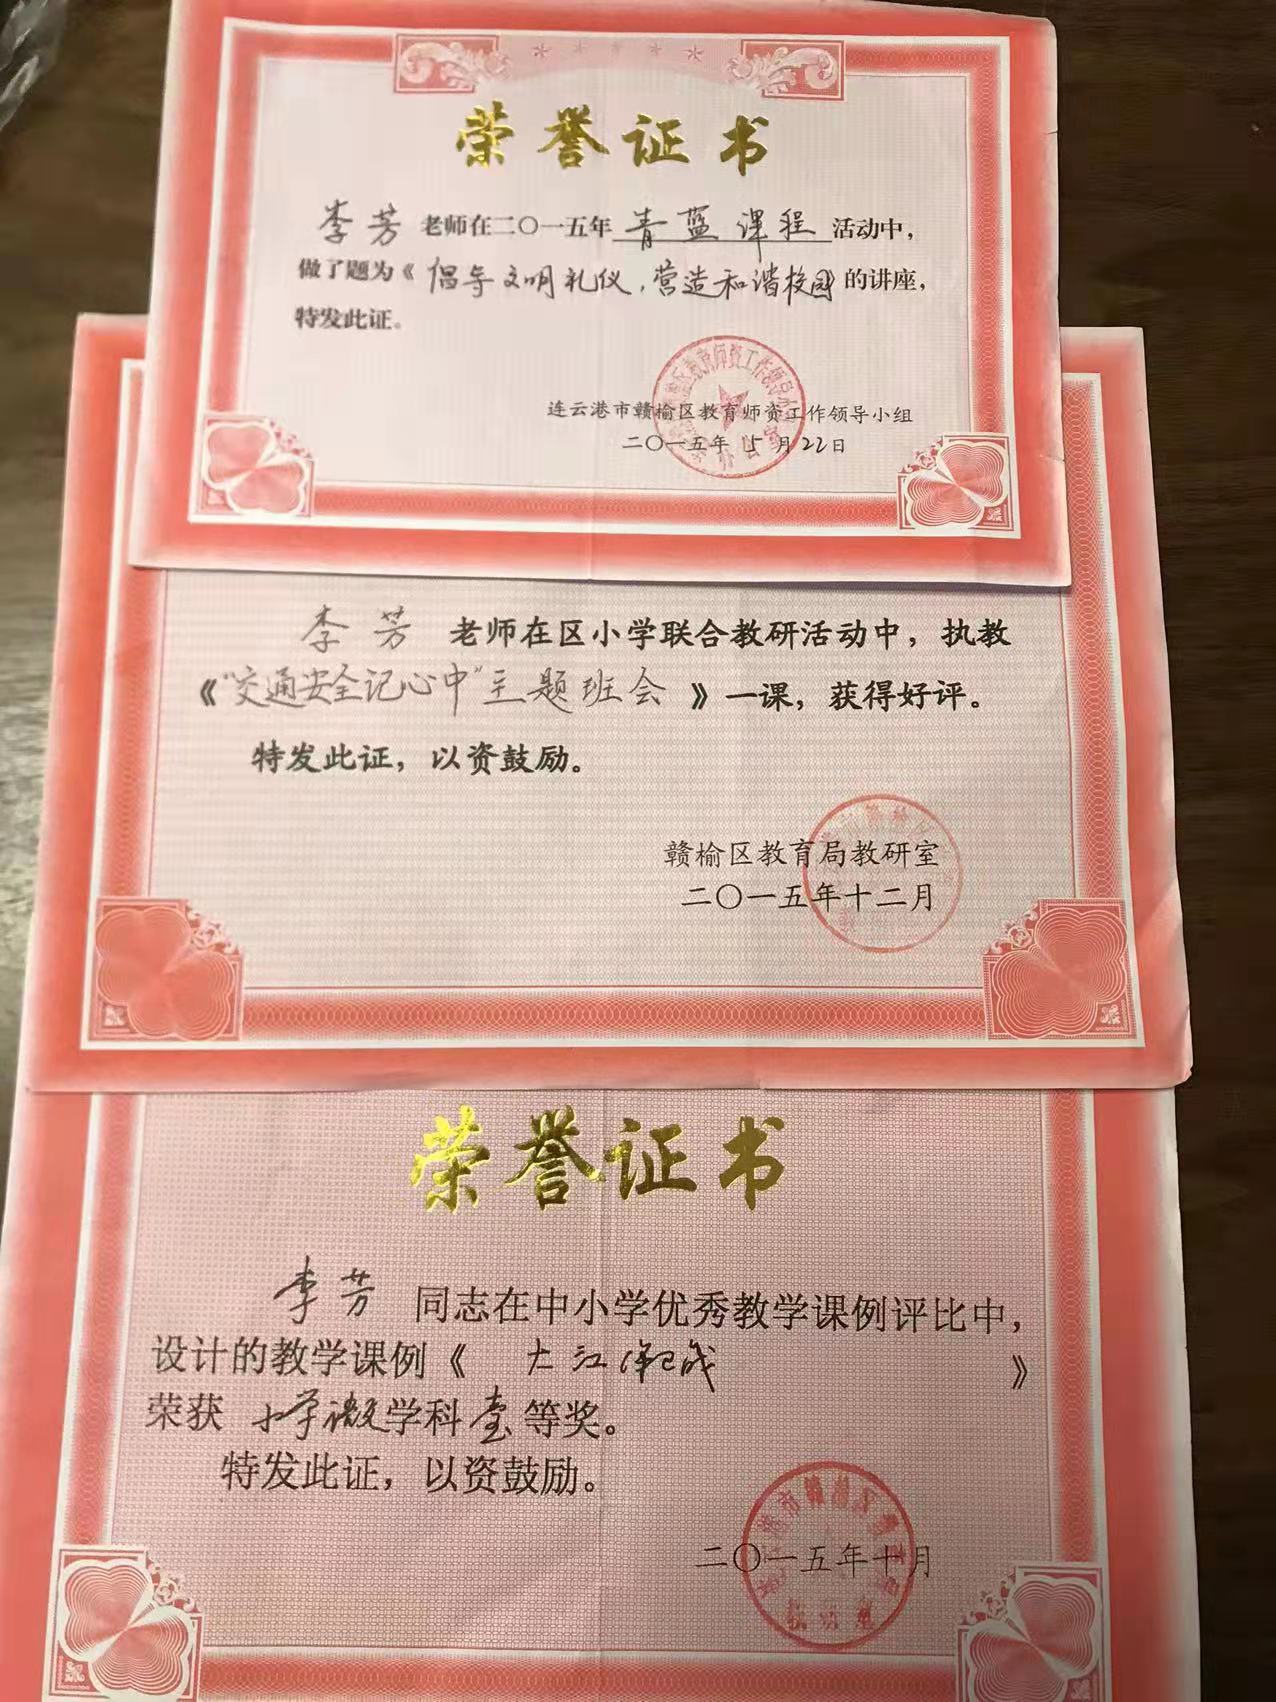 荣誉证书
李芳老师在二〇一五年青蓝课程活动中，
做了题为《倡导文明礼仪，营造和谐校园》的讲座，
特发此证。
连云港市赣榆区教育师资工作领导小组
二〇一五年5月22日
李芳 老师在区小学联合教研活动中，执教
《"交通安全记心中"主题班会》一课，获得好评。
特发此证，以资鼓励。
赣榆区教育局教研室
二〇一五年十二月
荣誉证书
李芳 同志在中小学优秀教学课例评比中，
设计的教学课例《大江保卫战》
荣获 小学微学科壹等奖。
特发此证，以资鼓励。
二〇一五年十月